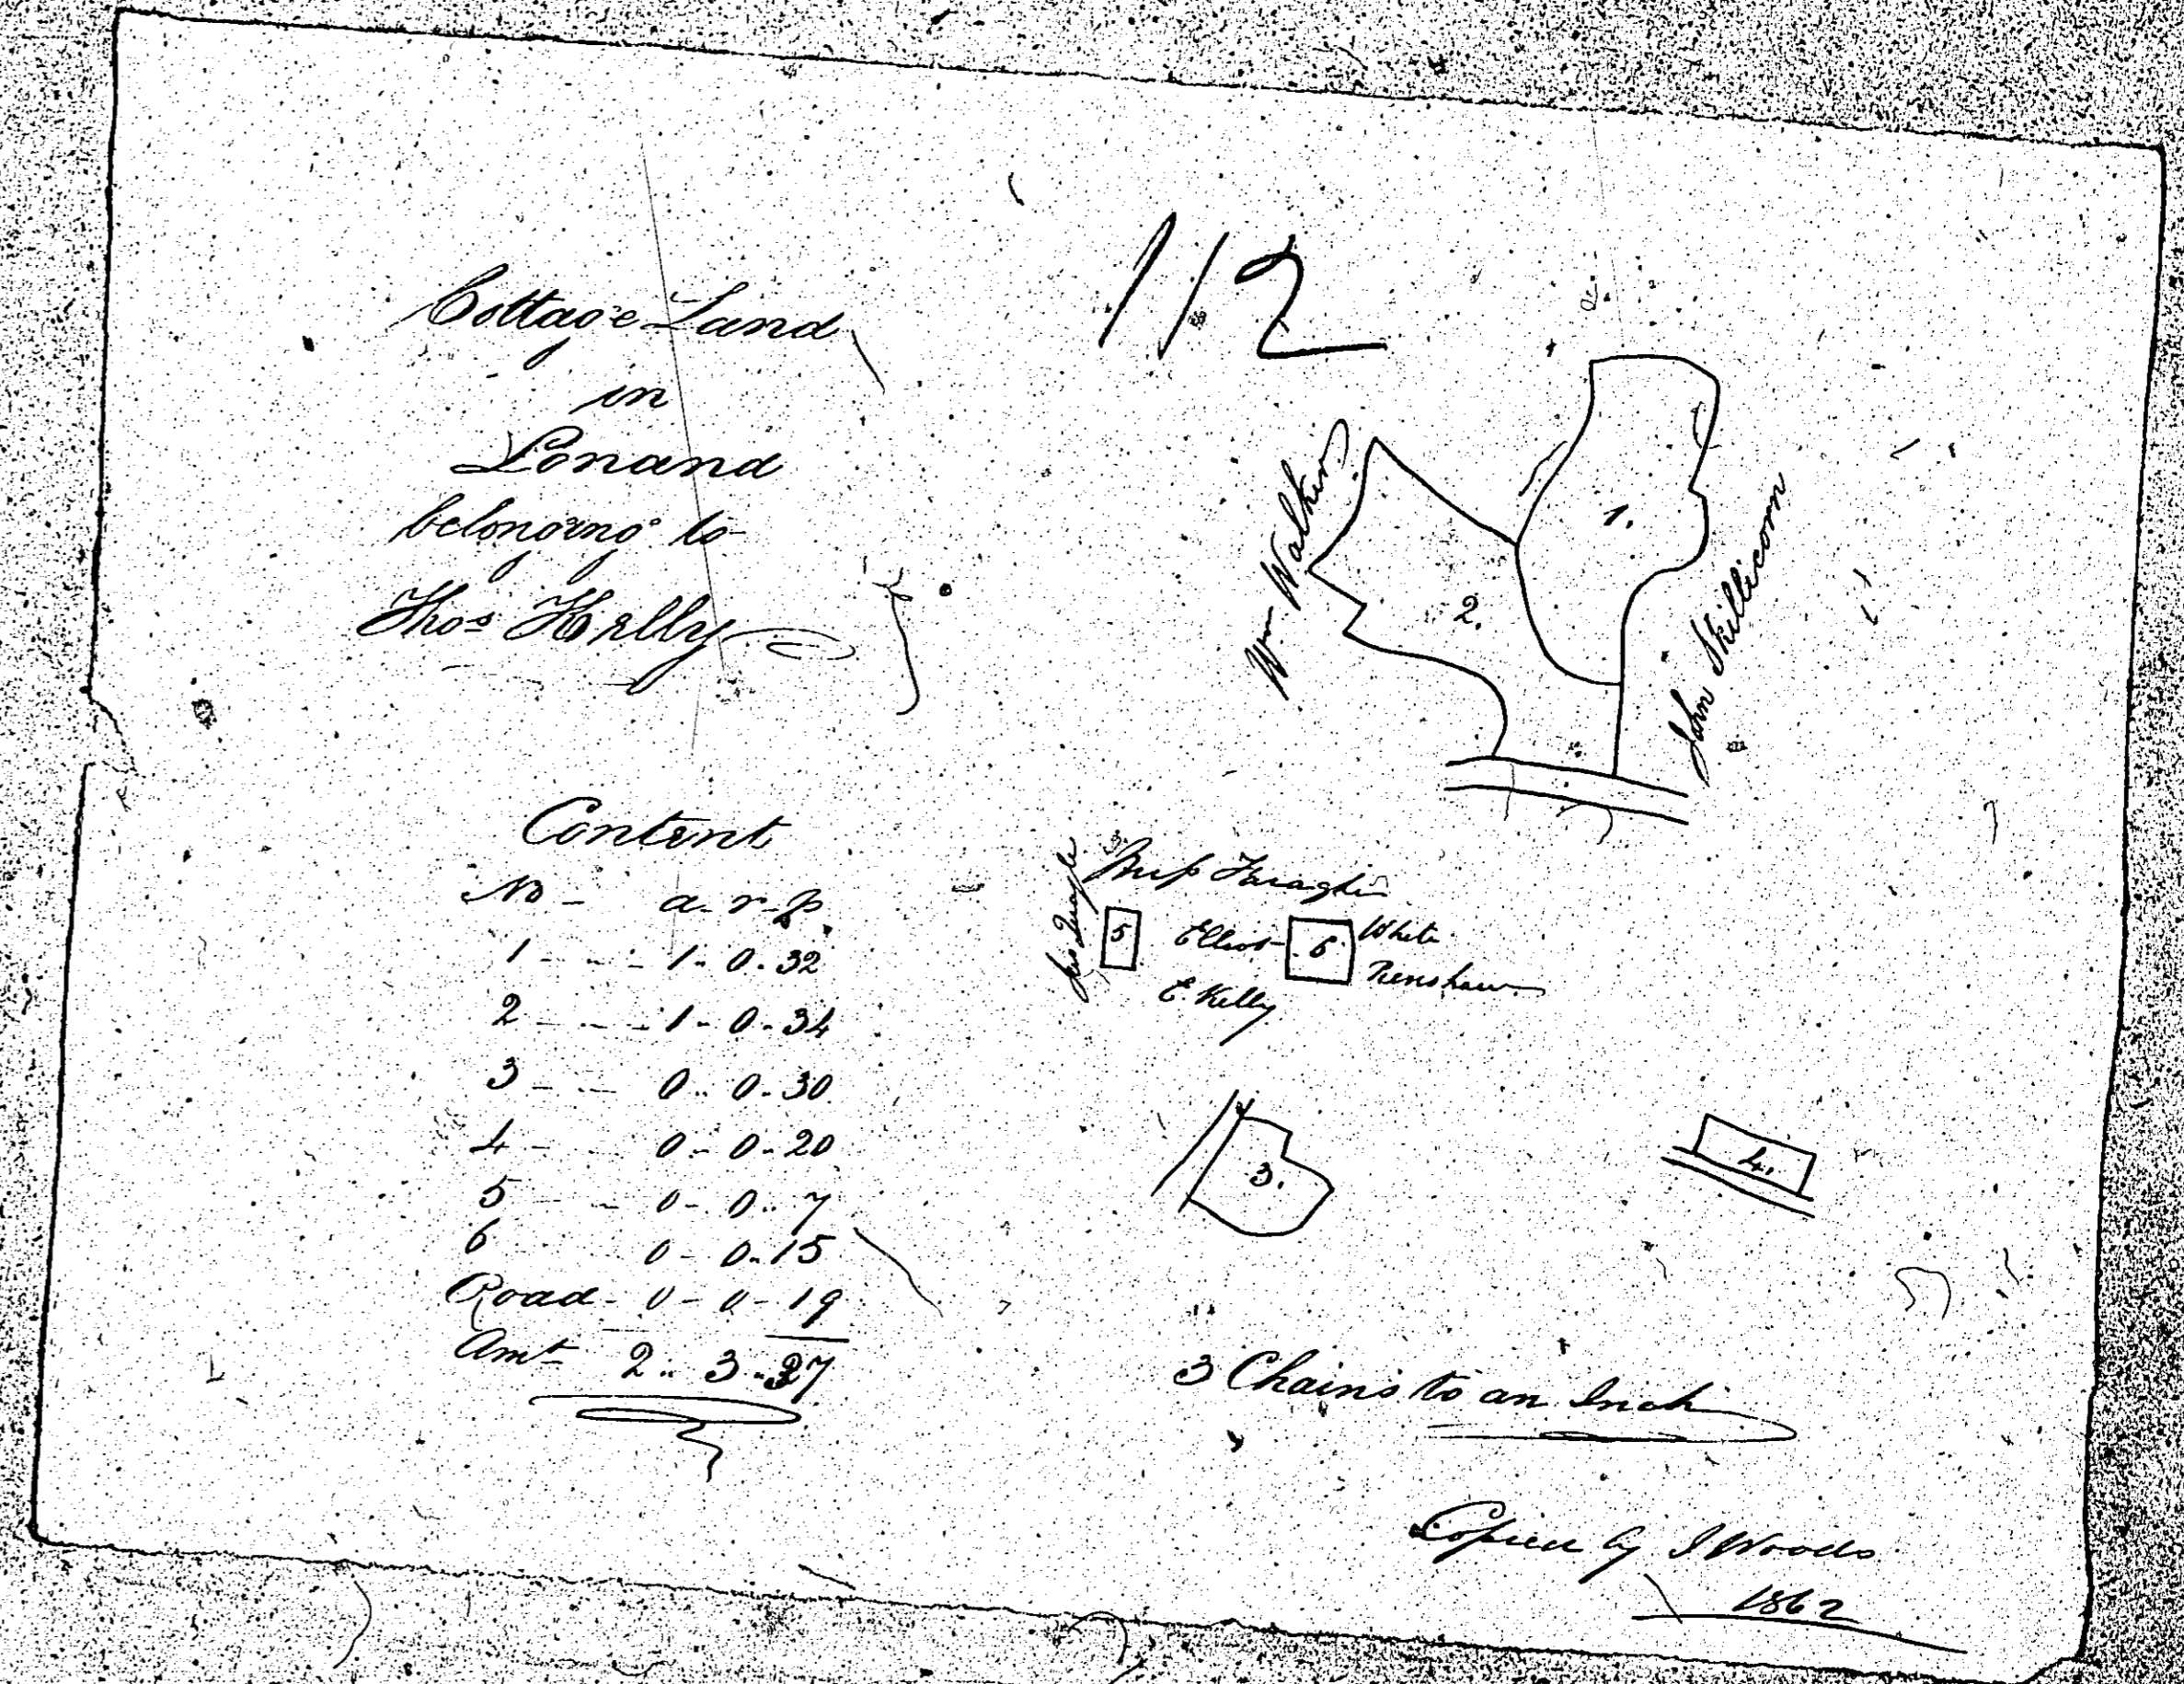 112
Cottage Land
in
Lonand
belonging to
Thos Kelly
Wm Walker
1.
2.
John Skillicorn
Content
No - a - r - p
1 - - - 1 - 0 - 32
2 - - - 1 - 0 - 34
3 - - 0 - 0 - 30
4 - 0 - 0 - 20
5 - - 0 - 0 - 7
6 0 - 0 - 15
Road - 0 - 0 - 19
Amt 2 - 3 - 37
Jas Quayle
Miss Faragher
5
Elliot
6
White
Renshaw
E. Kelly
3.
4.
3 Chains to an Inch
Copied by J Woods
1862